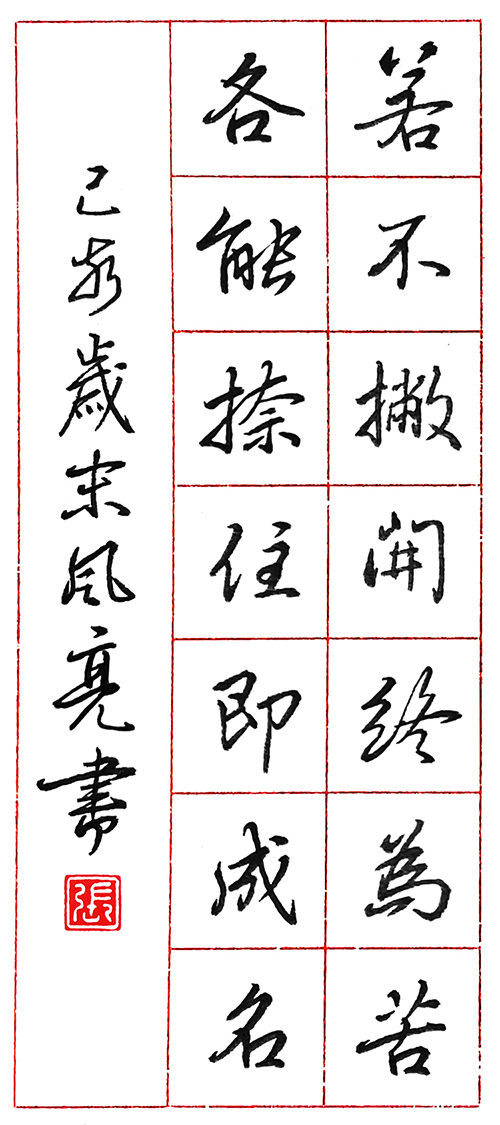 若不撇開終為苦
各能捺住即成名
己亥歲末風亮書
張